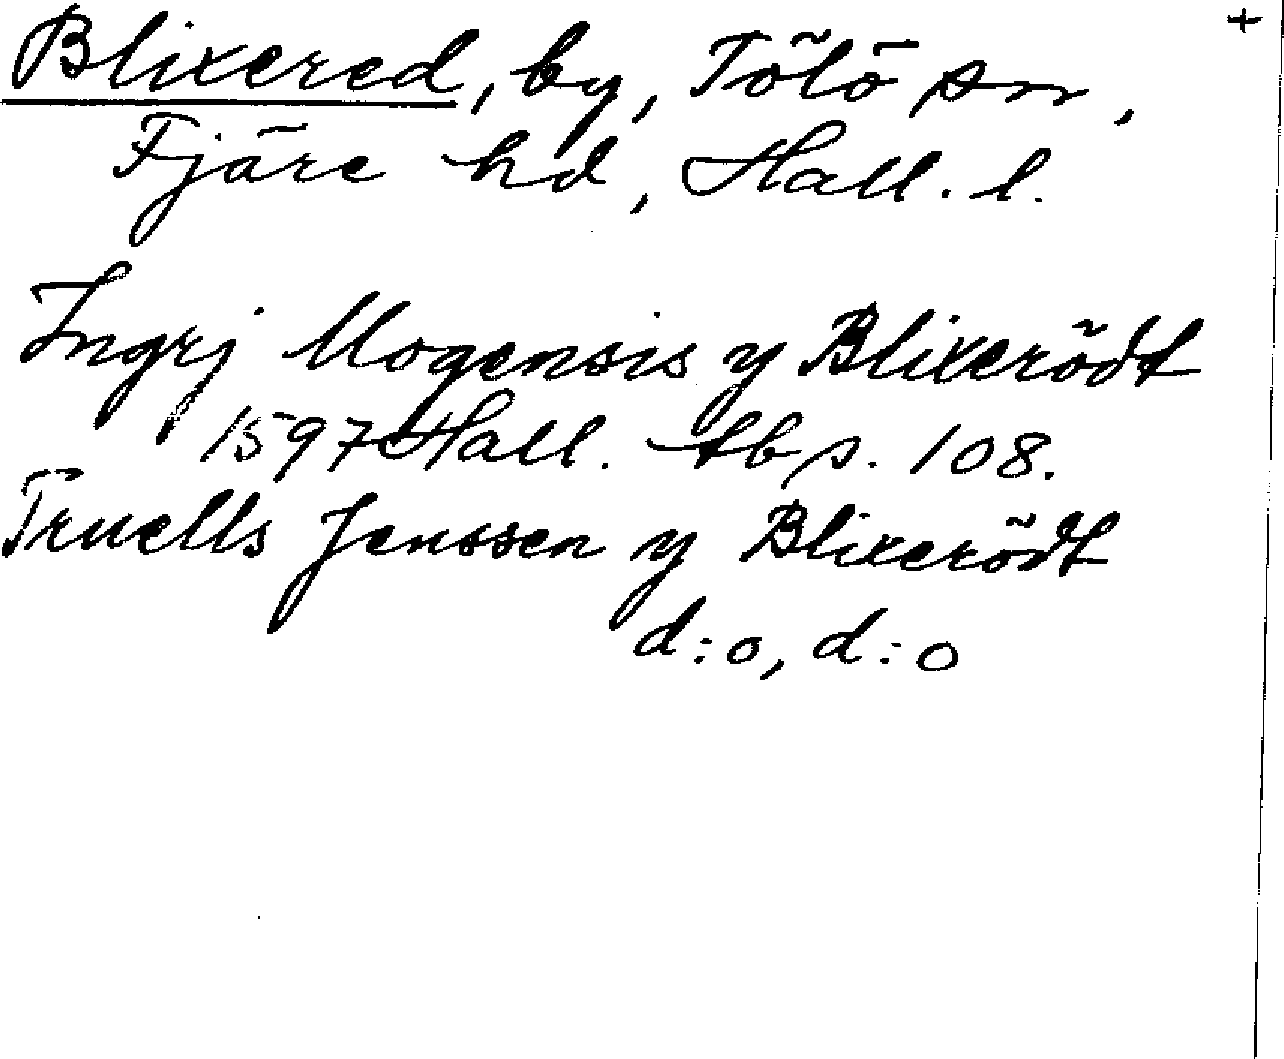 +
Blixered, by, Tölö sn,
Fjäre hd, Hall. l.
Ingrj Mogensis y Blixerödt
1597 Hall. tb s. 108.
Truells Jenssen y Blixerödt
d:o, d:o